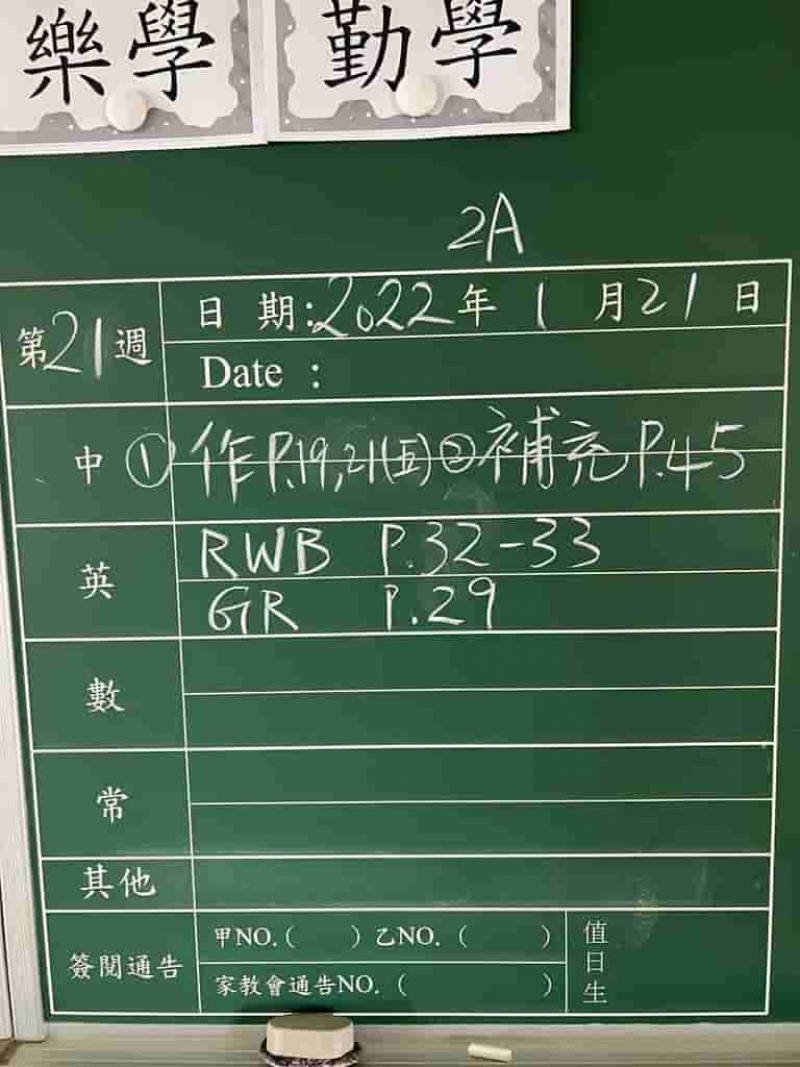 樂學 勤學
2A
第21週 日期:2022年1月21日
Date :
中 ①作P.19,21(五)②補充P.45
英 RWB P.32-33
GR P.29
數
常
其他
簽閱通告 甲NO.( ) 乙NO. ( ) 值日生
家教會通告NO. ( )